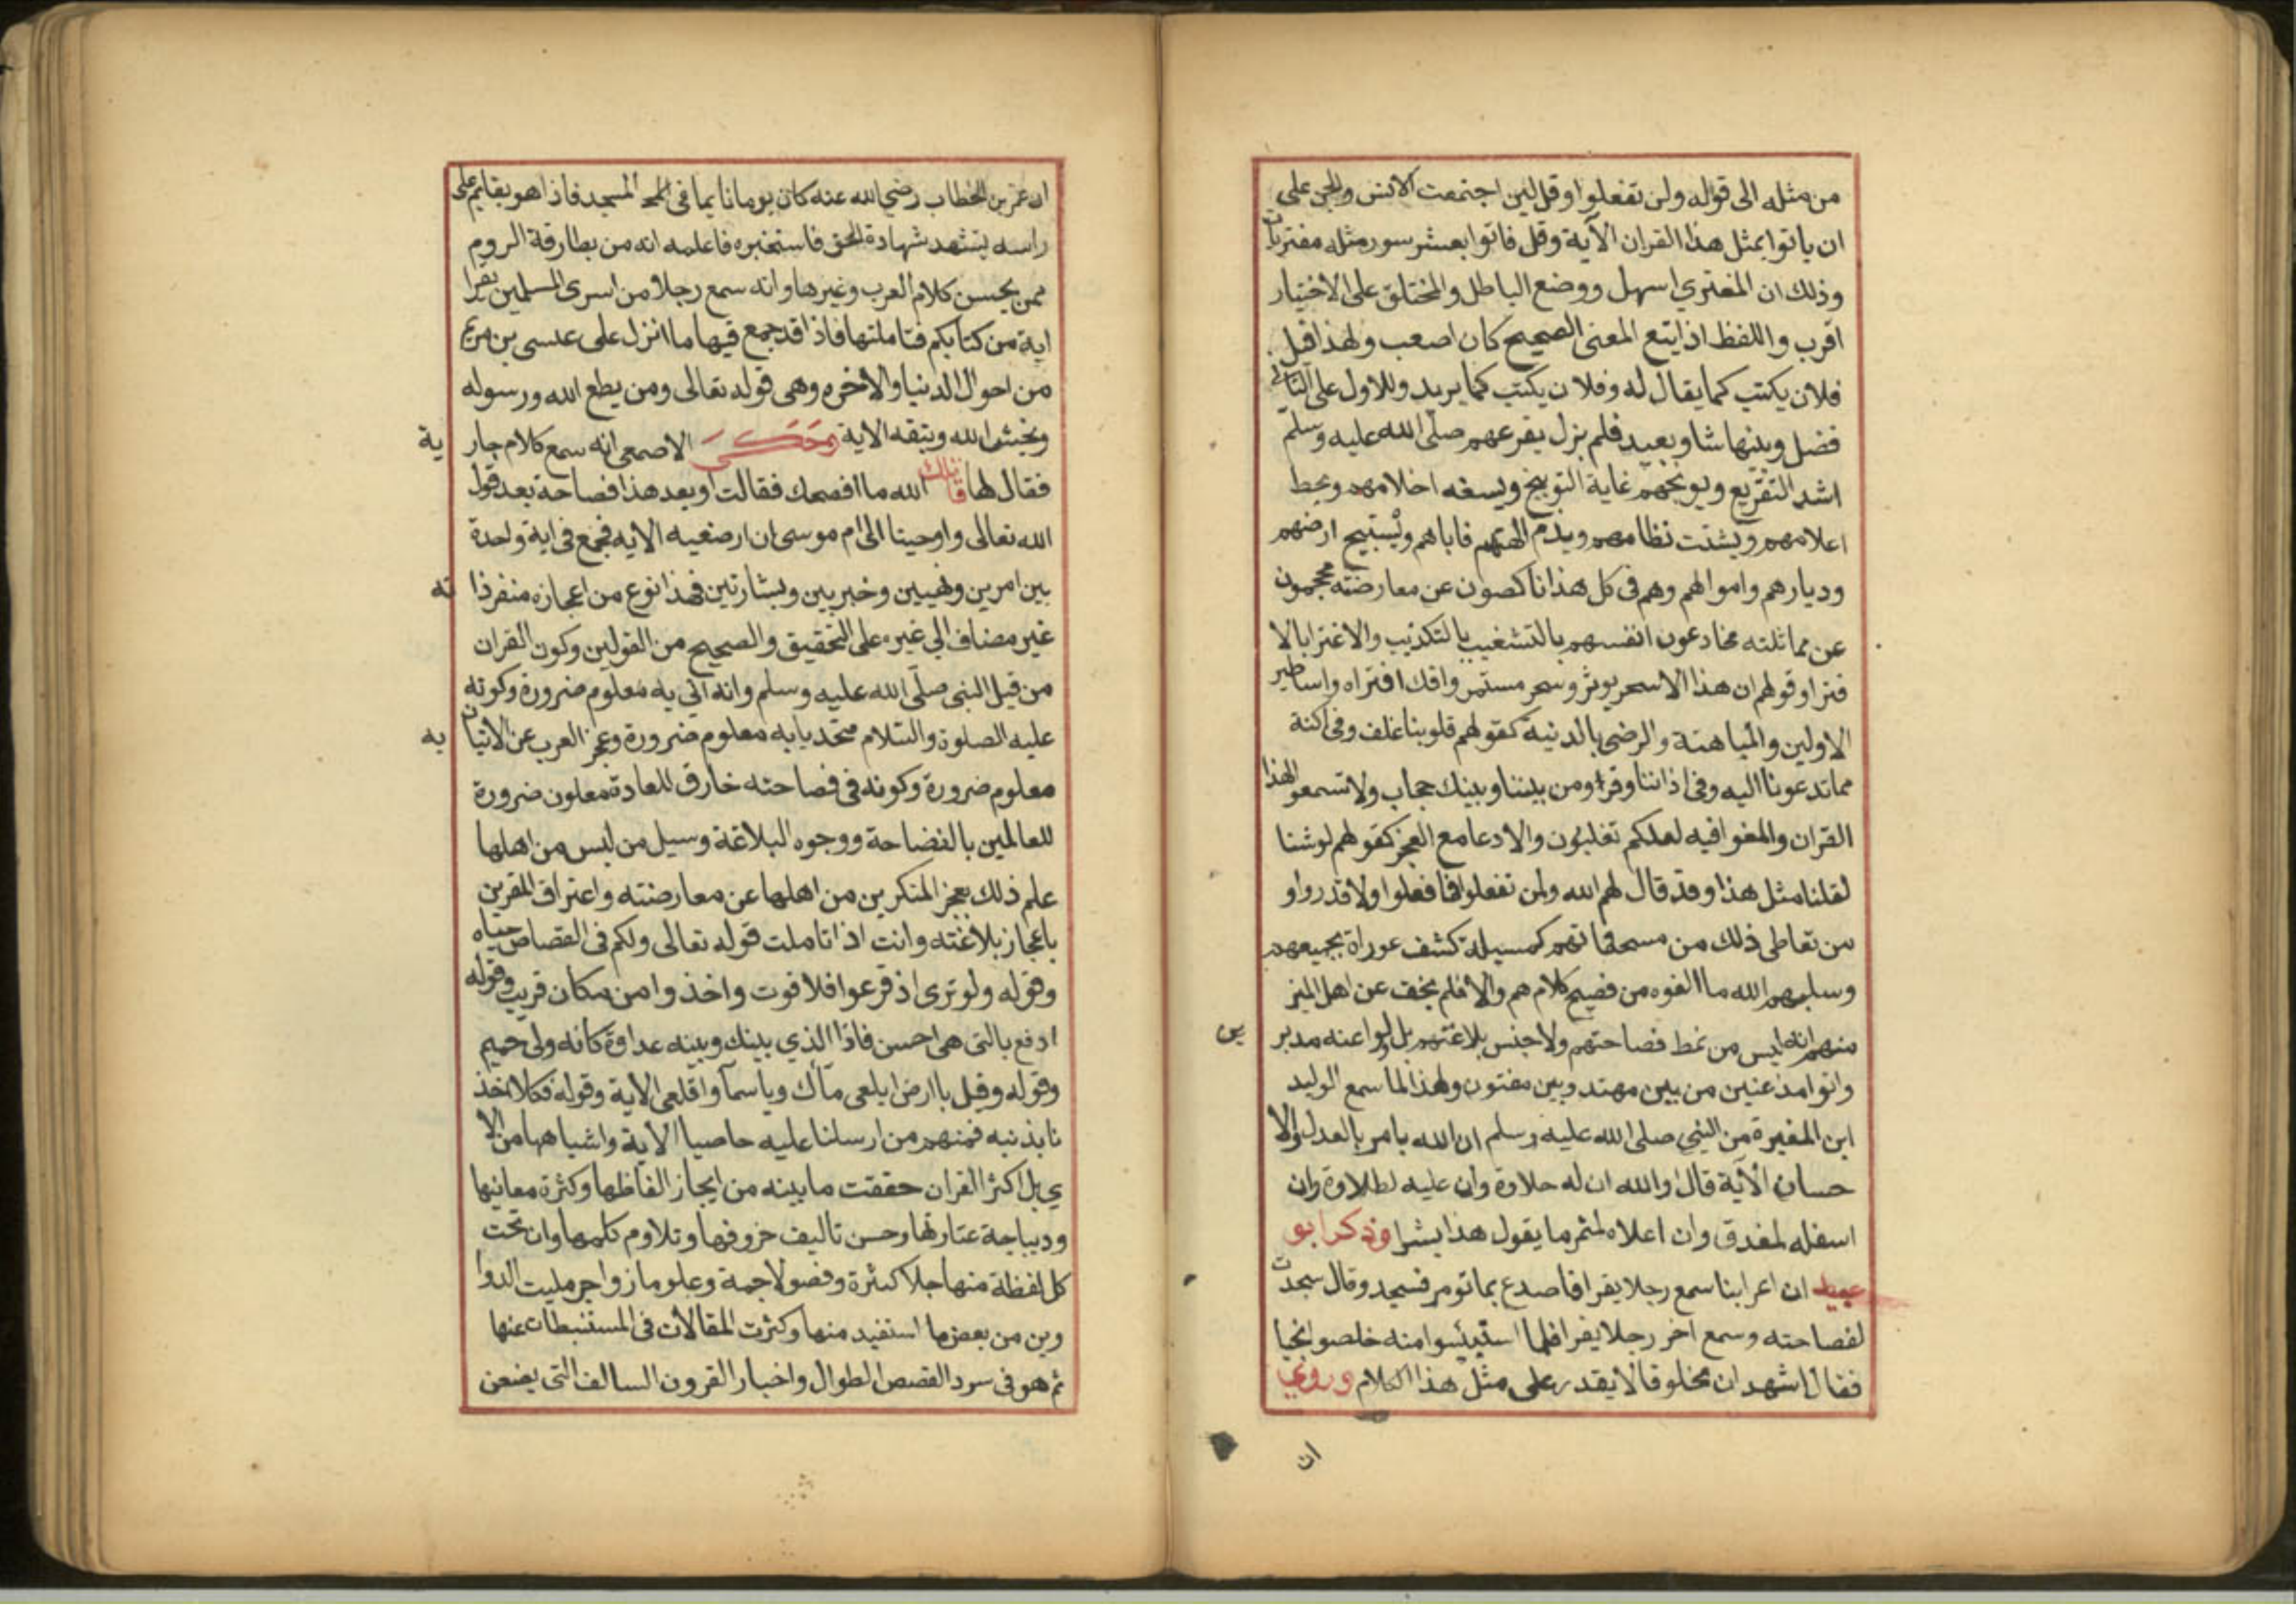 من مثله الى قوله ولن تفعلوا وقل لين اجتمعت الانس والجن على
ان ياتوا بمثل هذا القران الآية وقل فاتوا بعشر سور مثله مفتريات
وذلك ان المفتري اسهل ووضع الباطل والمختلق على الاختيار
اقرب واللفظ اذا يتع المعنى الصحيح كان اصعب ولهذا قيل
فلان يكتب كما يقال له وفلان يكتب كما يريد وللاول على الثاني
فضل وبينها شاو بعيد فلم يزل يقرعهم صلى الله عليه وسلم
اشد التقريع ويوبخهم غاية التوبيخ ويسفه احلامهم ويحط
اعلامهم ويشتت نظامهم ويذم الهتهم فاباهم ويستبيح ارضهم
وديارهم واموالهم وهم فى كل هذا ناكصون عن معارضته محجمون
عن مماثلته مخادعون انفسهم بالتشغيب بالتكذيب والاغترا بالا
فترا وقولهم ان هذا الاسحر يوثر وسحر مستمر وافك افتراه واساطير
الاولين والمباهتة والرضى بالدنية كقولهم قلوبنا غلف وفى اكنة
مما تدعونا اليه وفى اذاننا وقر ومن بيننا وبينك حجاب ولا تسمعوا لهذا
القران والمغوا فيه لعلكم تغلبون والادعا مع العجز كقولهم لو شنا
لقلنا مثل هذا وقد قال لهم الله ولن تفعلوا فما فعلوا ولا قدروا و
من تعاطى ذلك من كمسيلة كشف عوراة بجميعهم
وسلبهم الله ما الفوه من فصيح كلامهم والا فلم يخف عن اهل الميز
منهم انه ليس من نمط فصاحتهم ولا جنس بلاغتهم بل لوا عنه مدبر ين
واتوا مذعنين من بين مهتد وبين مفتون ولهذا لما سمع الوليد
ابن المغيرة من النبي صلى الله عليه وسلم ان الله يامر بالعدل والا
حسان الآية قال والله ان له حلاوة وان عليه لطلاوة وان
اسفله لمغدق وان اعلاه لمثمر ما يقول هذا بشرا وذكر ابو
عبيد ان اعرابنا سمع رجلا يقرا فاصدع بما تومر فسجد وقال سجدت
لفصاحته وسمع اخر رجلا يقرا فلما استيئسوا منه خلصوا نجيا
فقال اشهد ان مخلوقا لا يقدر على مثل هذا الكلام وروي
ان
ان عمر بن الخطاب رضي الله عنه كان يوما نايما فى المسجد فاذا هو بقايم على
راسه يتشهد شهادة الحق فاستخبره فاعلمه انه من بطارقة الروم
ممن يحسن كلام العرب وغيرها وانه سمع رجلا من اسرى المسلمين يقرا
اية من كتابكم فتاملتها فاذا قد جمع فيها ما انزل على عيسى بن مريم
من احوال الدنيا والاخره وهى قوله تعالى ومن يطع الله ورسوله
ويخش الله ويتقه الاية وحكى الاصمعى انه سمع كلام جار ية
فقال لها قاتلك الله ما افصحك فقالت اويعد هذا فصاحة بعد قول
الله تعالى واوحينا الى ام موسى ان ارضعيه الاية فجمع فى اية واحدة
بين امرين ونهيين وخبرين وبشارتين فهذا نوع من اعجازه منفردا ته
غير مضاف الي غيره على التحقيق والصحيح من القولين وكون القران
من قيل النبى صلى الله عليه وسلم وانه اتي به معلوم ضرورة وكونه
عليه الصلوة والسلام متحديا به معلوم ضرورة وعجز العرب عن الاتيان به
معلوم ضرورة وكونه فى فصاحته خارق للعادة معلون ضرورة
للعالمين بالفصاحة ووجوه البلاغة وسيل من ليس من اهلها
علم ذلك بعجز المنكرين من اهلها عن معارضته واعتراف المقرين
باعجاز بلاغته وانت اذا تاملت قوله تعالى ولكم فى القصاص حياه
وقوله ولو ترى اذ فرعوا فلا فوت واخذوا من مكان قريب وقوله
ادفع بالتى هى احسن فاذا الذي بينك وبينه عداوة كانه ولى حميم
وقوله وقيل يا ارض ابلعى ماك ويا سما واقلعى الاية وقوله فكلا اخذ
نا بذنبه فمنهم من ارسلنا عليه حاصبا الاية واشباهها من الا
ي بل اكثر القران حققت ما بينه من ايجاز الفاظها وكثرة معانيها
وديباجة عبارتها وحسن تاليف حروفها وتلاوم كلمها وان تحت
كل لفظة منها جلا كثرة وفصولا جمة وعلوما زواجر مليت الدوا
وين من بعض ما استفيد منها وكثرت المقالات فى المستنبطات عنها
ثم هو فى سرد القصص الطوال واخبار القرون السالف التى يضعن